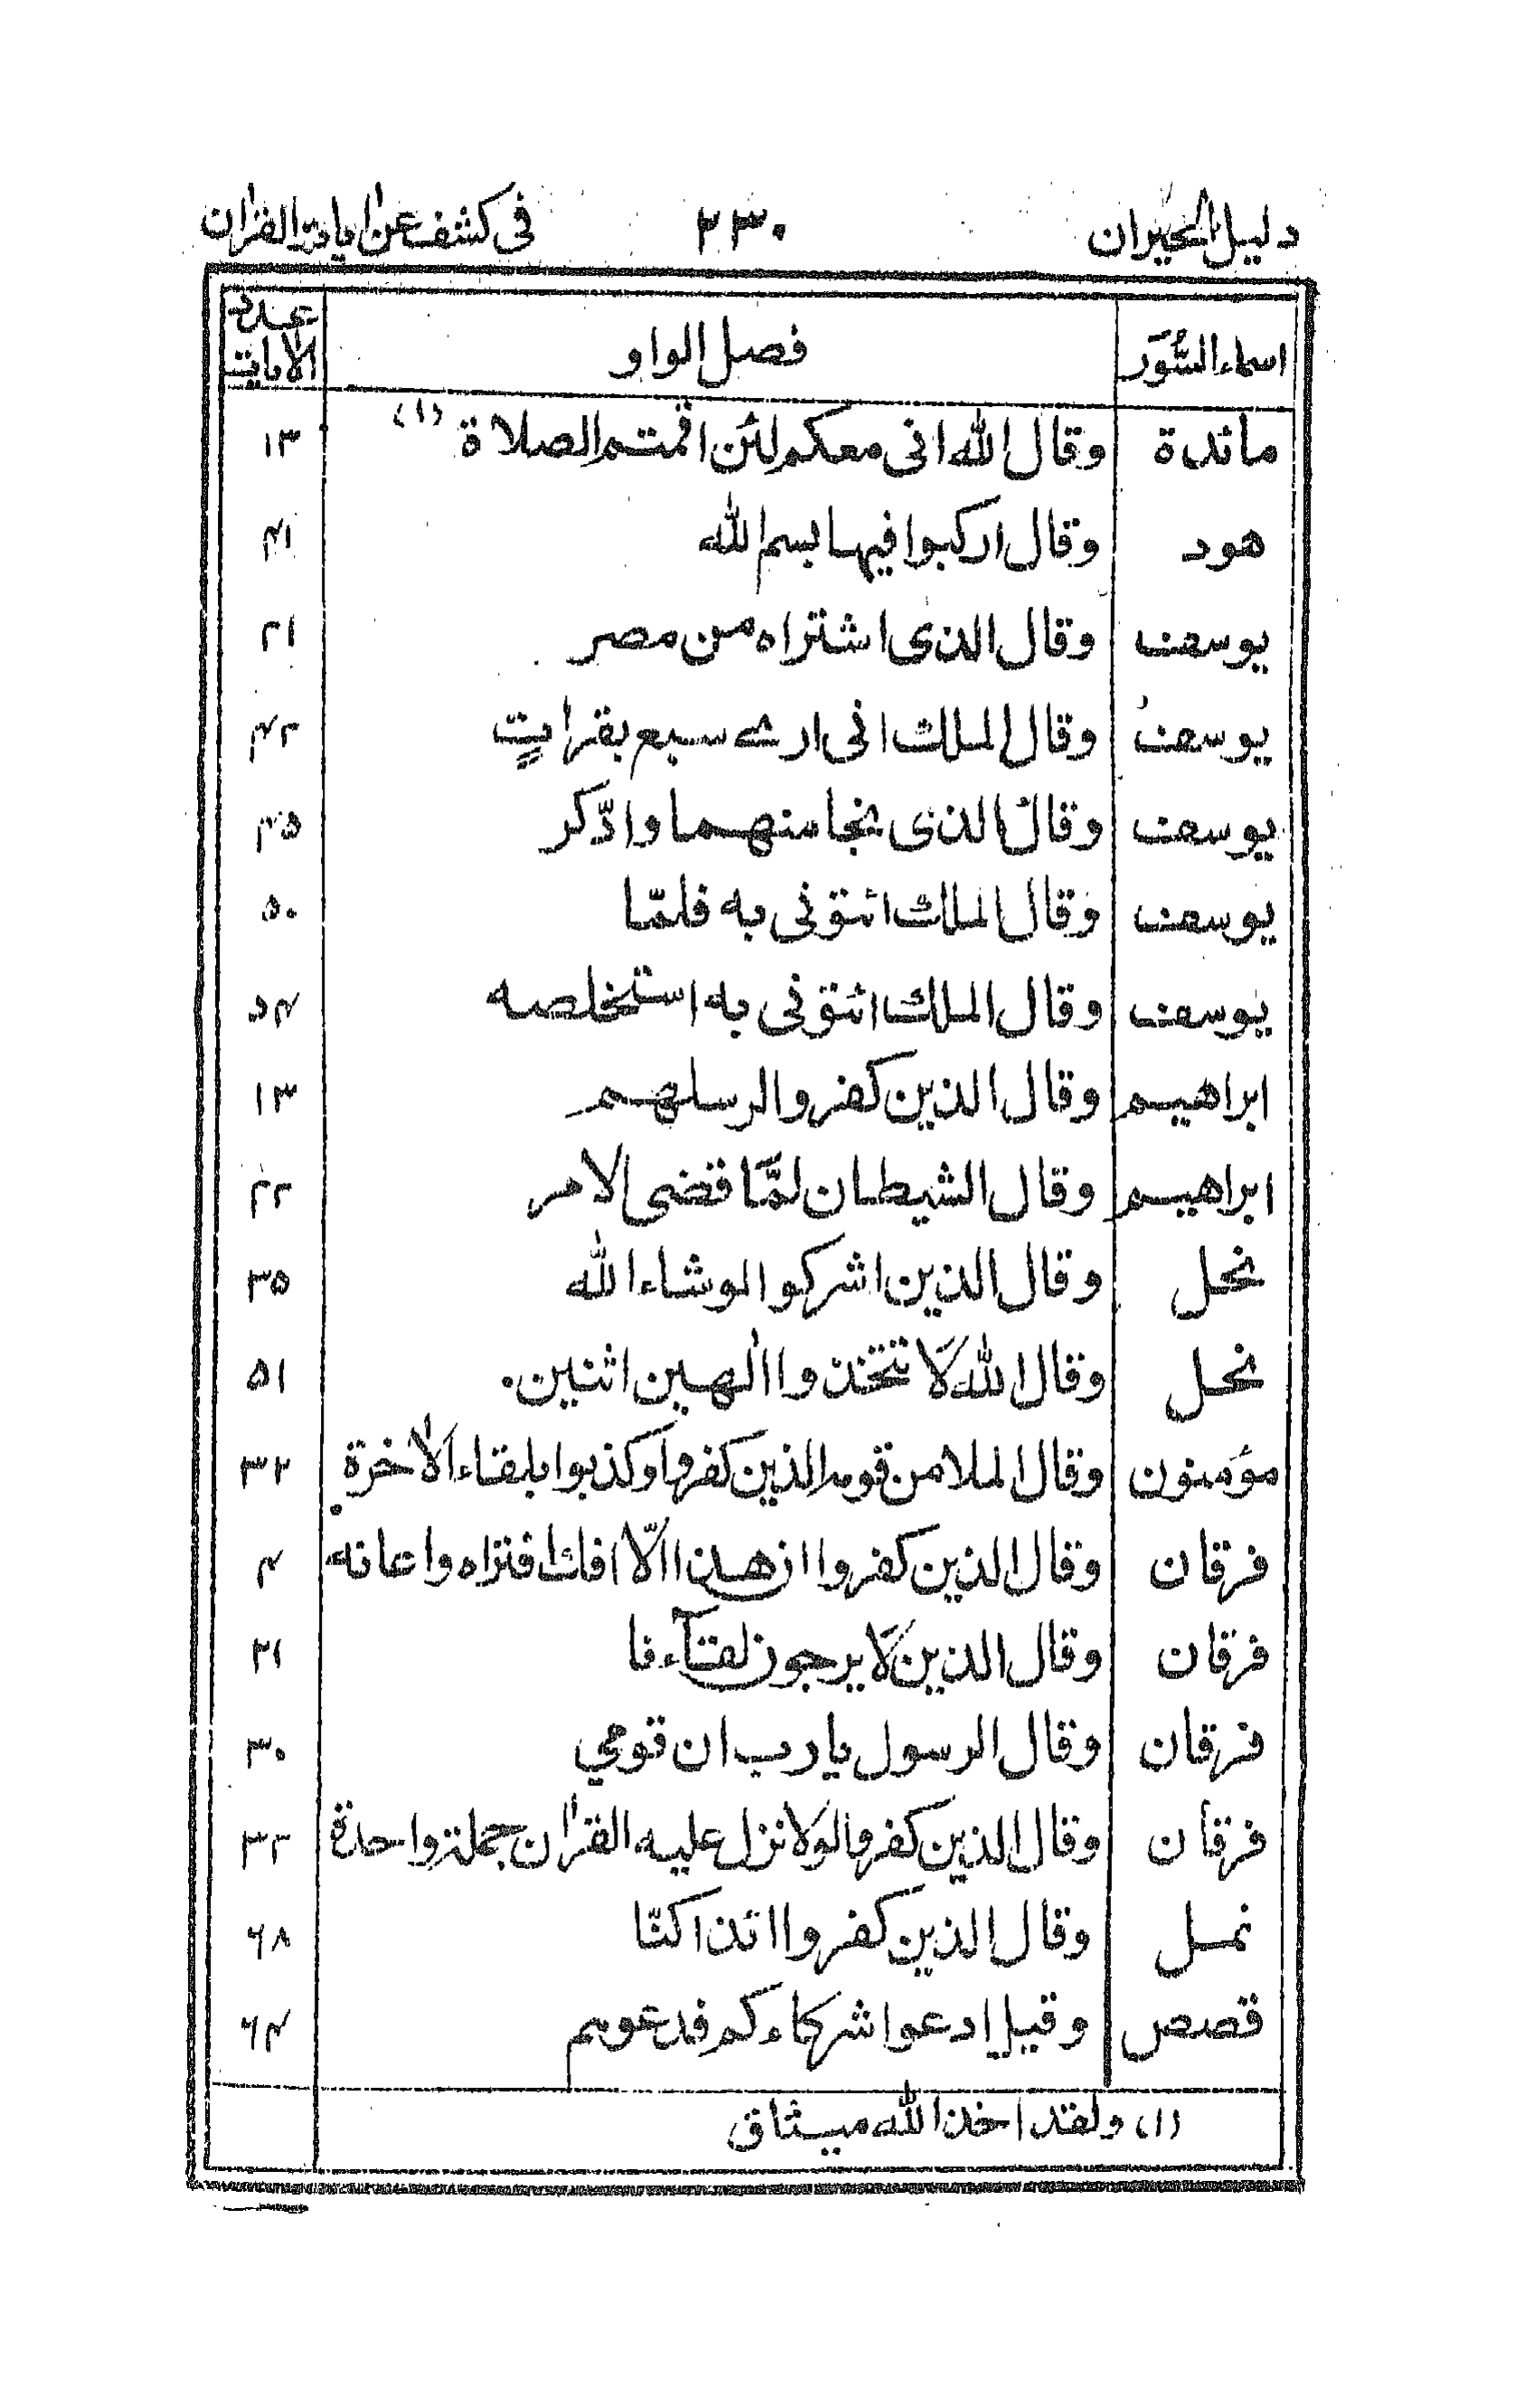 دليل الحيران ٢٣٠ في كشف عن ايات القران
اسماء السُّوَر فصل الواو عدد الايات
مائدة وقال الله انى معكم لئن اقمتم الصلاة (١) ١٣
هود وقال اركبوا فيها بسم الله ۴١
يوسف وقال الذى اشتراه من مصر ٢١
يوسف وقال الملك انى ارى سبع بقراتٍ ۴٣
يوسف وقال الذى نجا منهما وادّكر ۴۵
يوسف وقال الملك ائتونى به فلمّا ۵٠
يوسف وقال الملك ائتونى به استخلصه ۵۴
ابراهيم وقال الذين كفروا لرسلهم ١٣
ابراهيم وقال الشيطان لمَّا قضى الامر ٢٢
نحل وقال الذين اشركوا لوشاء الله ٣۵
نحل وقال الله لَا تتخذوا الٰهين اثنين. ۵١
مؤمنون وقال الملا من قومه الذين كفروا وكذبوا بلقاء الاٰخرة ٣٣
فرقان وقال الذين كفروا ان هذا الّا افك افتراه واعانه ۴
فرقان وقال الذين لَا يرجون لقآءنا ٢١
فرقان وقال الرسول يا رب ان قومي ٣٠
فرقان وقال الذين كفروا لولا نزل عليه القراٰن جملة واحدة ٣٢
نمل وقال الذين كفروا ائذا كنّا ٦٨
قصص وقيل ادعوا شركاءكم فدعوهم ٦۴
(١) ولقد اخذ الله ميثاق